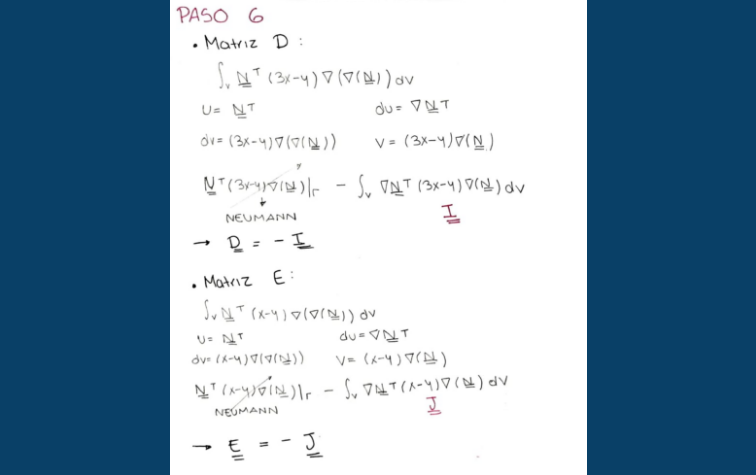 PASO 6
• Matriz D:
∫ᵥ N̲ᵀ (3x-4) ∇(∇(N̲)) dv
U= N̲ᵀ du= ∇N̲ᵀ
dv= (3x-4)∇(∇(N̲)) V= (3x-4)∇(N̲)
N̲ᵀ(3x-4)∇(N̲)|Γ - ∫ᵥ ∇N̲ᵀ (3x-4)∇(N̲) dv
↓ I
NEUMANN
→ D = - I
• Matriz E:
∫ᵥ N̲ᵀ (x-4) ∇(∇(N̲)) dv
U= N̲ᵀ du= ∇N̲ᵀ
dv= (x-4)∇(∇(N̲)) V= (x-4)∇(N̲)
N̲ᵀ(x-4)∇(N̲)|Γ - ∫ᵥ ∇N̲ᵀ(x-4)∇(N̲) dv
NEUMANN J
→ E = - J